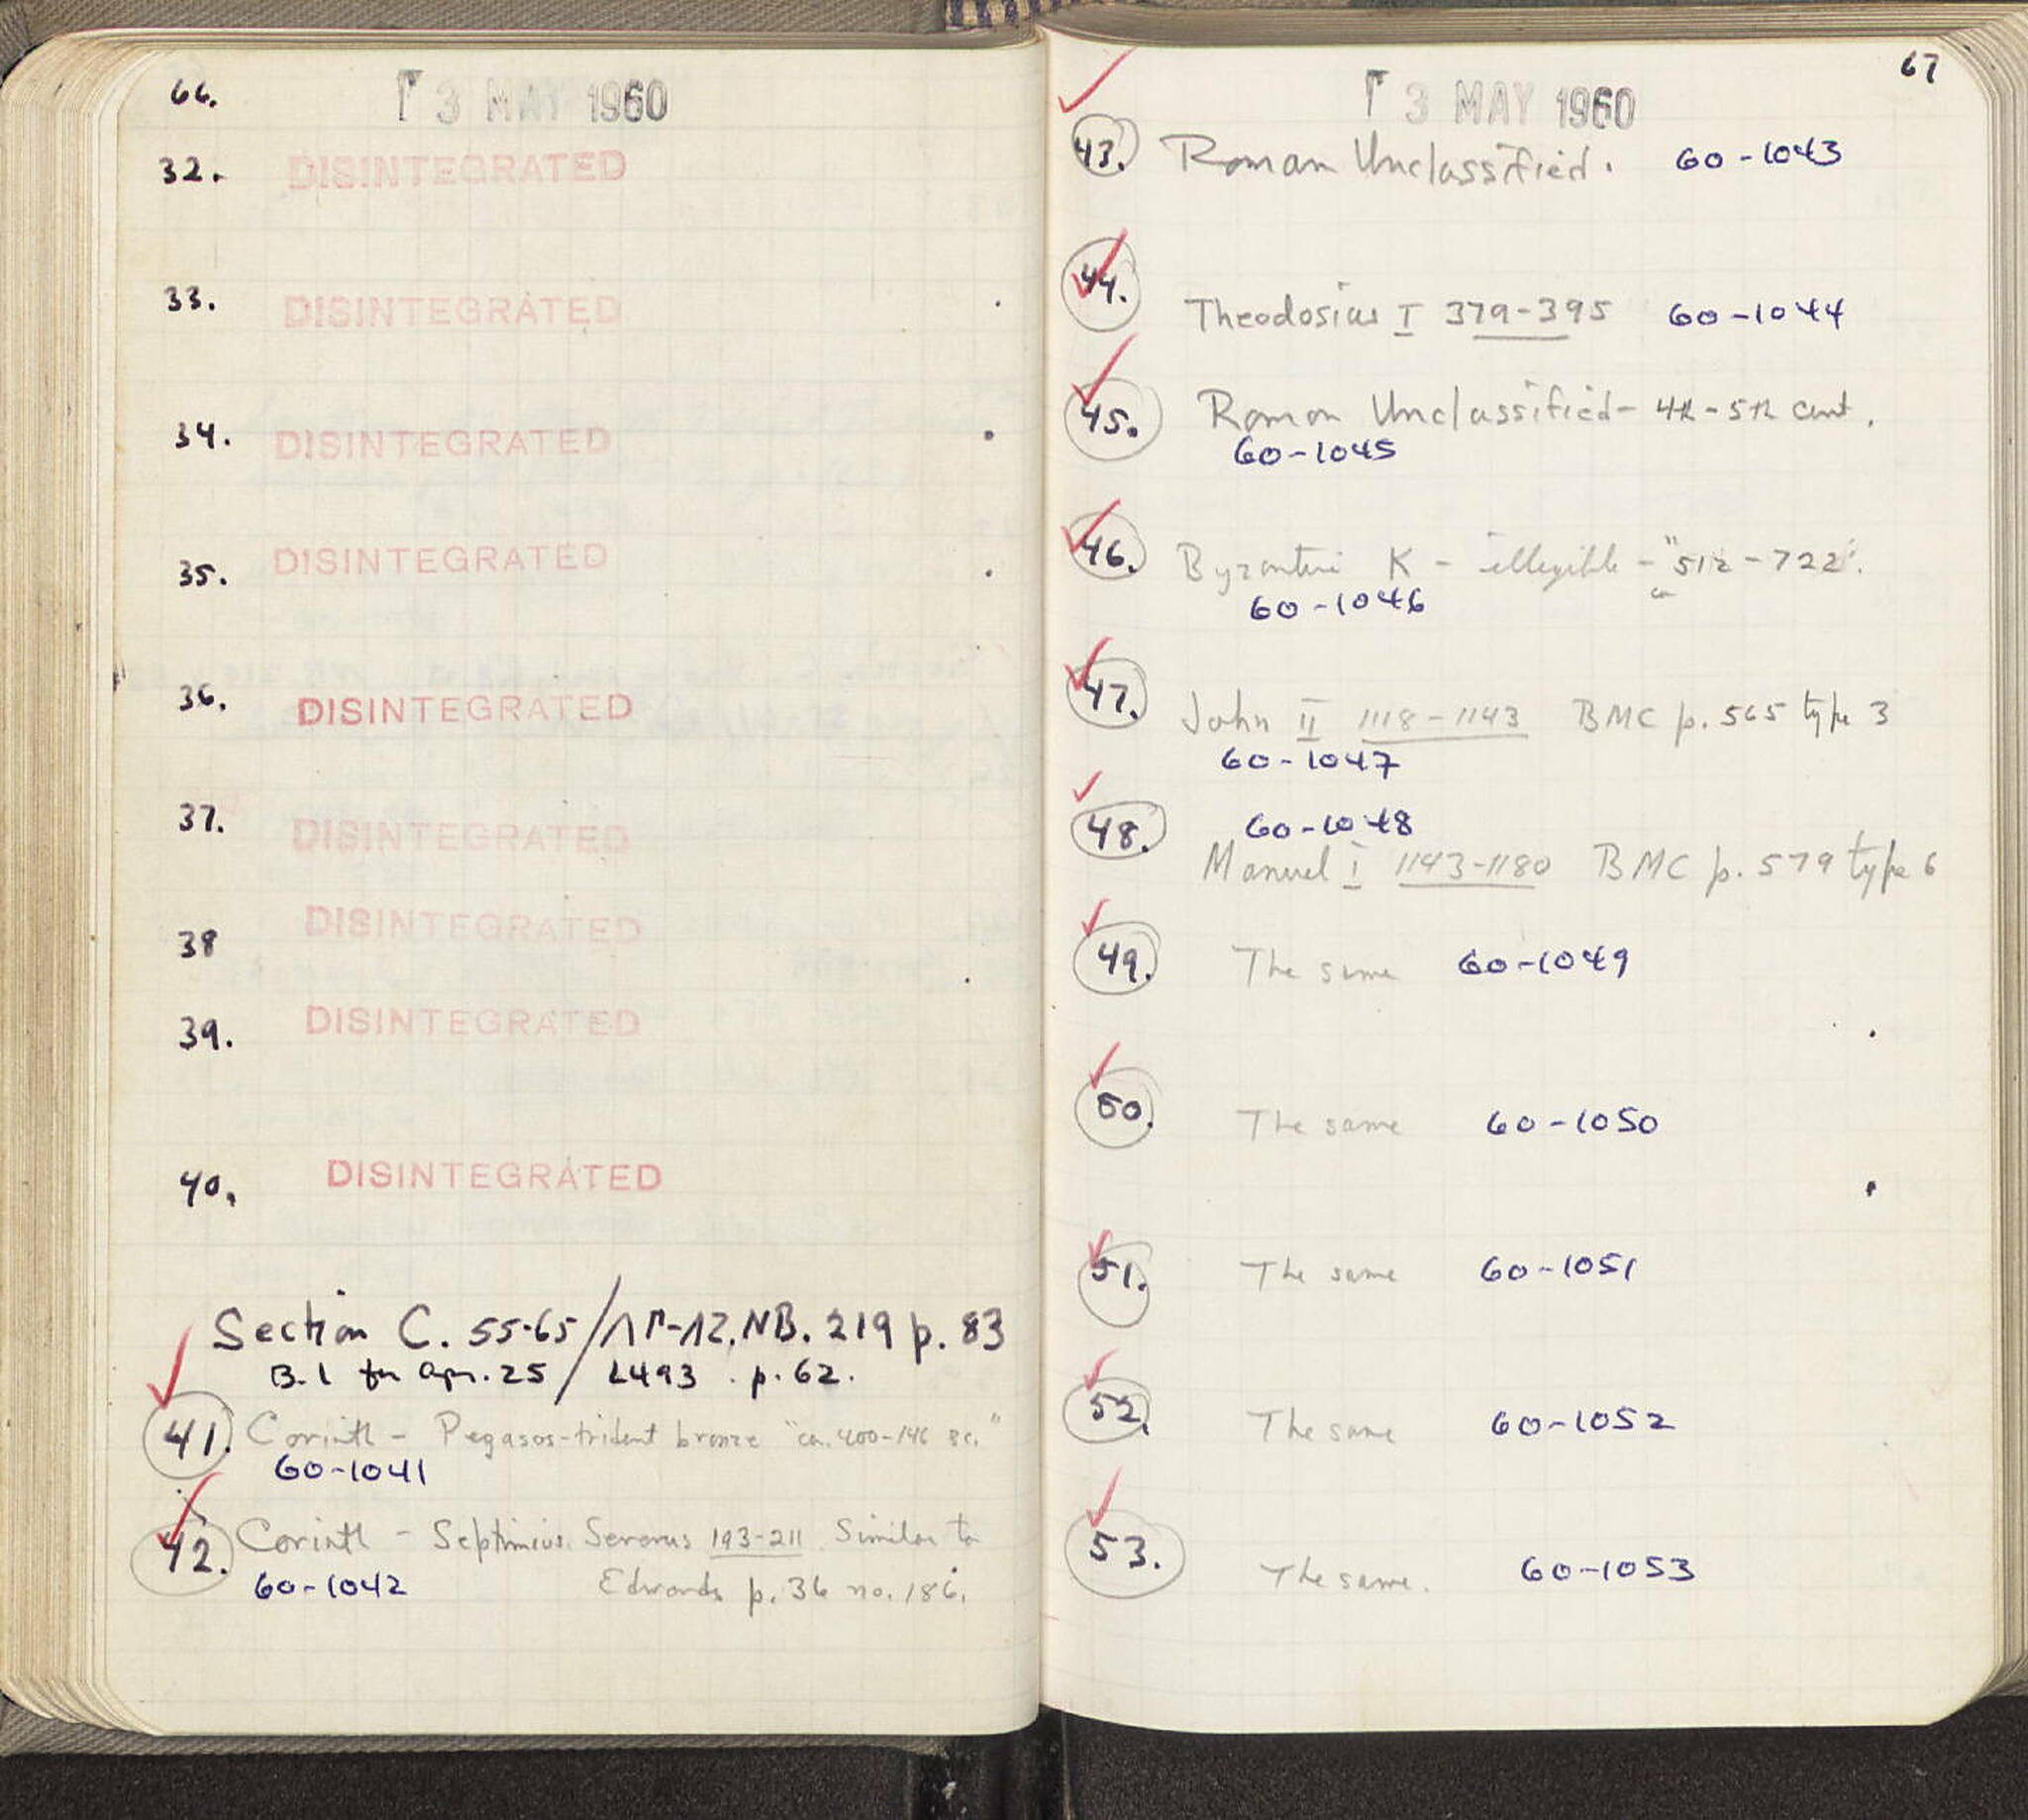 66.
3 MAY 1960
32. DISINTEGRATED
33. DISINTEGRATED
34. DISINTEGRATED
35. DISINTEGRATED
36. DISINTEGRATED
37. DISINTEGRATED
38 DISINTEGRATED
39. DISINTEGRATED
40. DISINTEGRATED
Section C. 55-65/ΛΠ-ΛΖ, NB. 219 p. 83
B. I for Apr. 25 / L493 . p. 62.
41. Corinth - Pegasos-trident bronze "ca. 400-146 BC."
60-1041
42. Corinth - Septimius Severus 193-211 Similar to
60-1042 Edwards p. 36 no. 186.
67
3 MAY 1960
43. Roman Unclassified. 60-1043
44. Theodosius I 379-395 60-1044
45. Roman Unclassified - 4th-5th cent.
60-1045
46. Byzantine K - illegible - "512-722".
ca
60-1046
47. John II 1118-1143 BMC p. 565 type 3
60-1047
48. 60-1048
Manuel I 1143-1180 BMC p. 579 type 6
49. The same 60-1049
50. The same 60-1050
51. The same 60-1051
52. The same 60-1052
53. The same. 60-1053